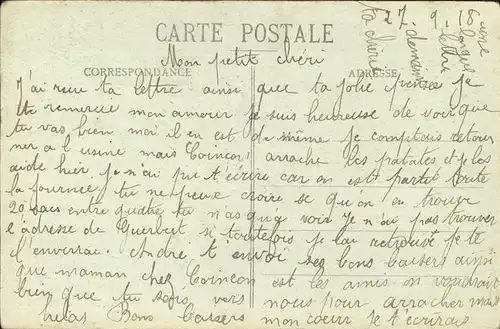 CARTE POSTALE
27. 9. 18
Mon petit chéri
CORRESPONDANCE
ADRESSE
J'ai reçu ta lettre ainsi que ta jolie pensée je
te remercie mon amour je suis heureuse de voir que
tu vas bien moi il en est de même je comptais retour
ner a l usine mais Coincon arrache les patates et je les
aide hier. Je n'ai pu t'écrire car on est partie toute
la journée tu ne peux croire se qu'on en trouve
20 sacs entre quatre tu n'as qua voir Je n'ai pas trouver
l'adresse de Guerbet si toutefois je la retrouve je te
l'enverrai. Andre t'envoi ses bons baisers ainsi
que maman chez Coincon est les amis on voudrait
bien que tu sois vers nous pour arracher mais
helas Bons baisers mon coeur je t'écrirai
demain
une longue lettre
ta chérie